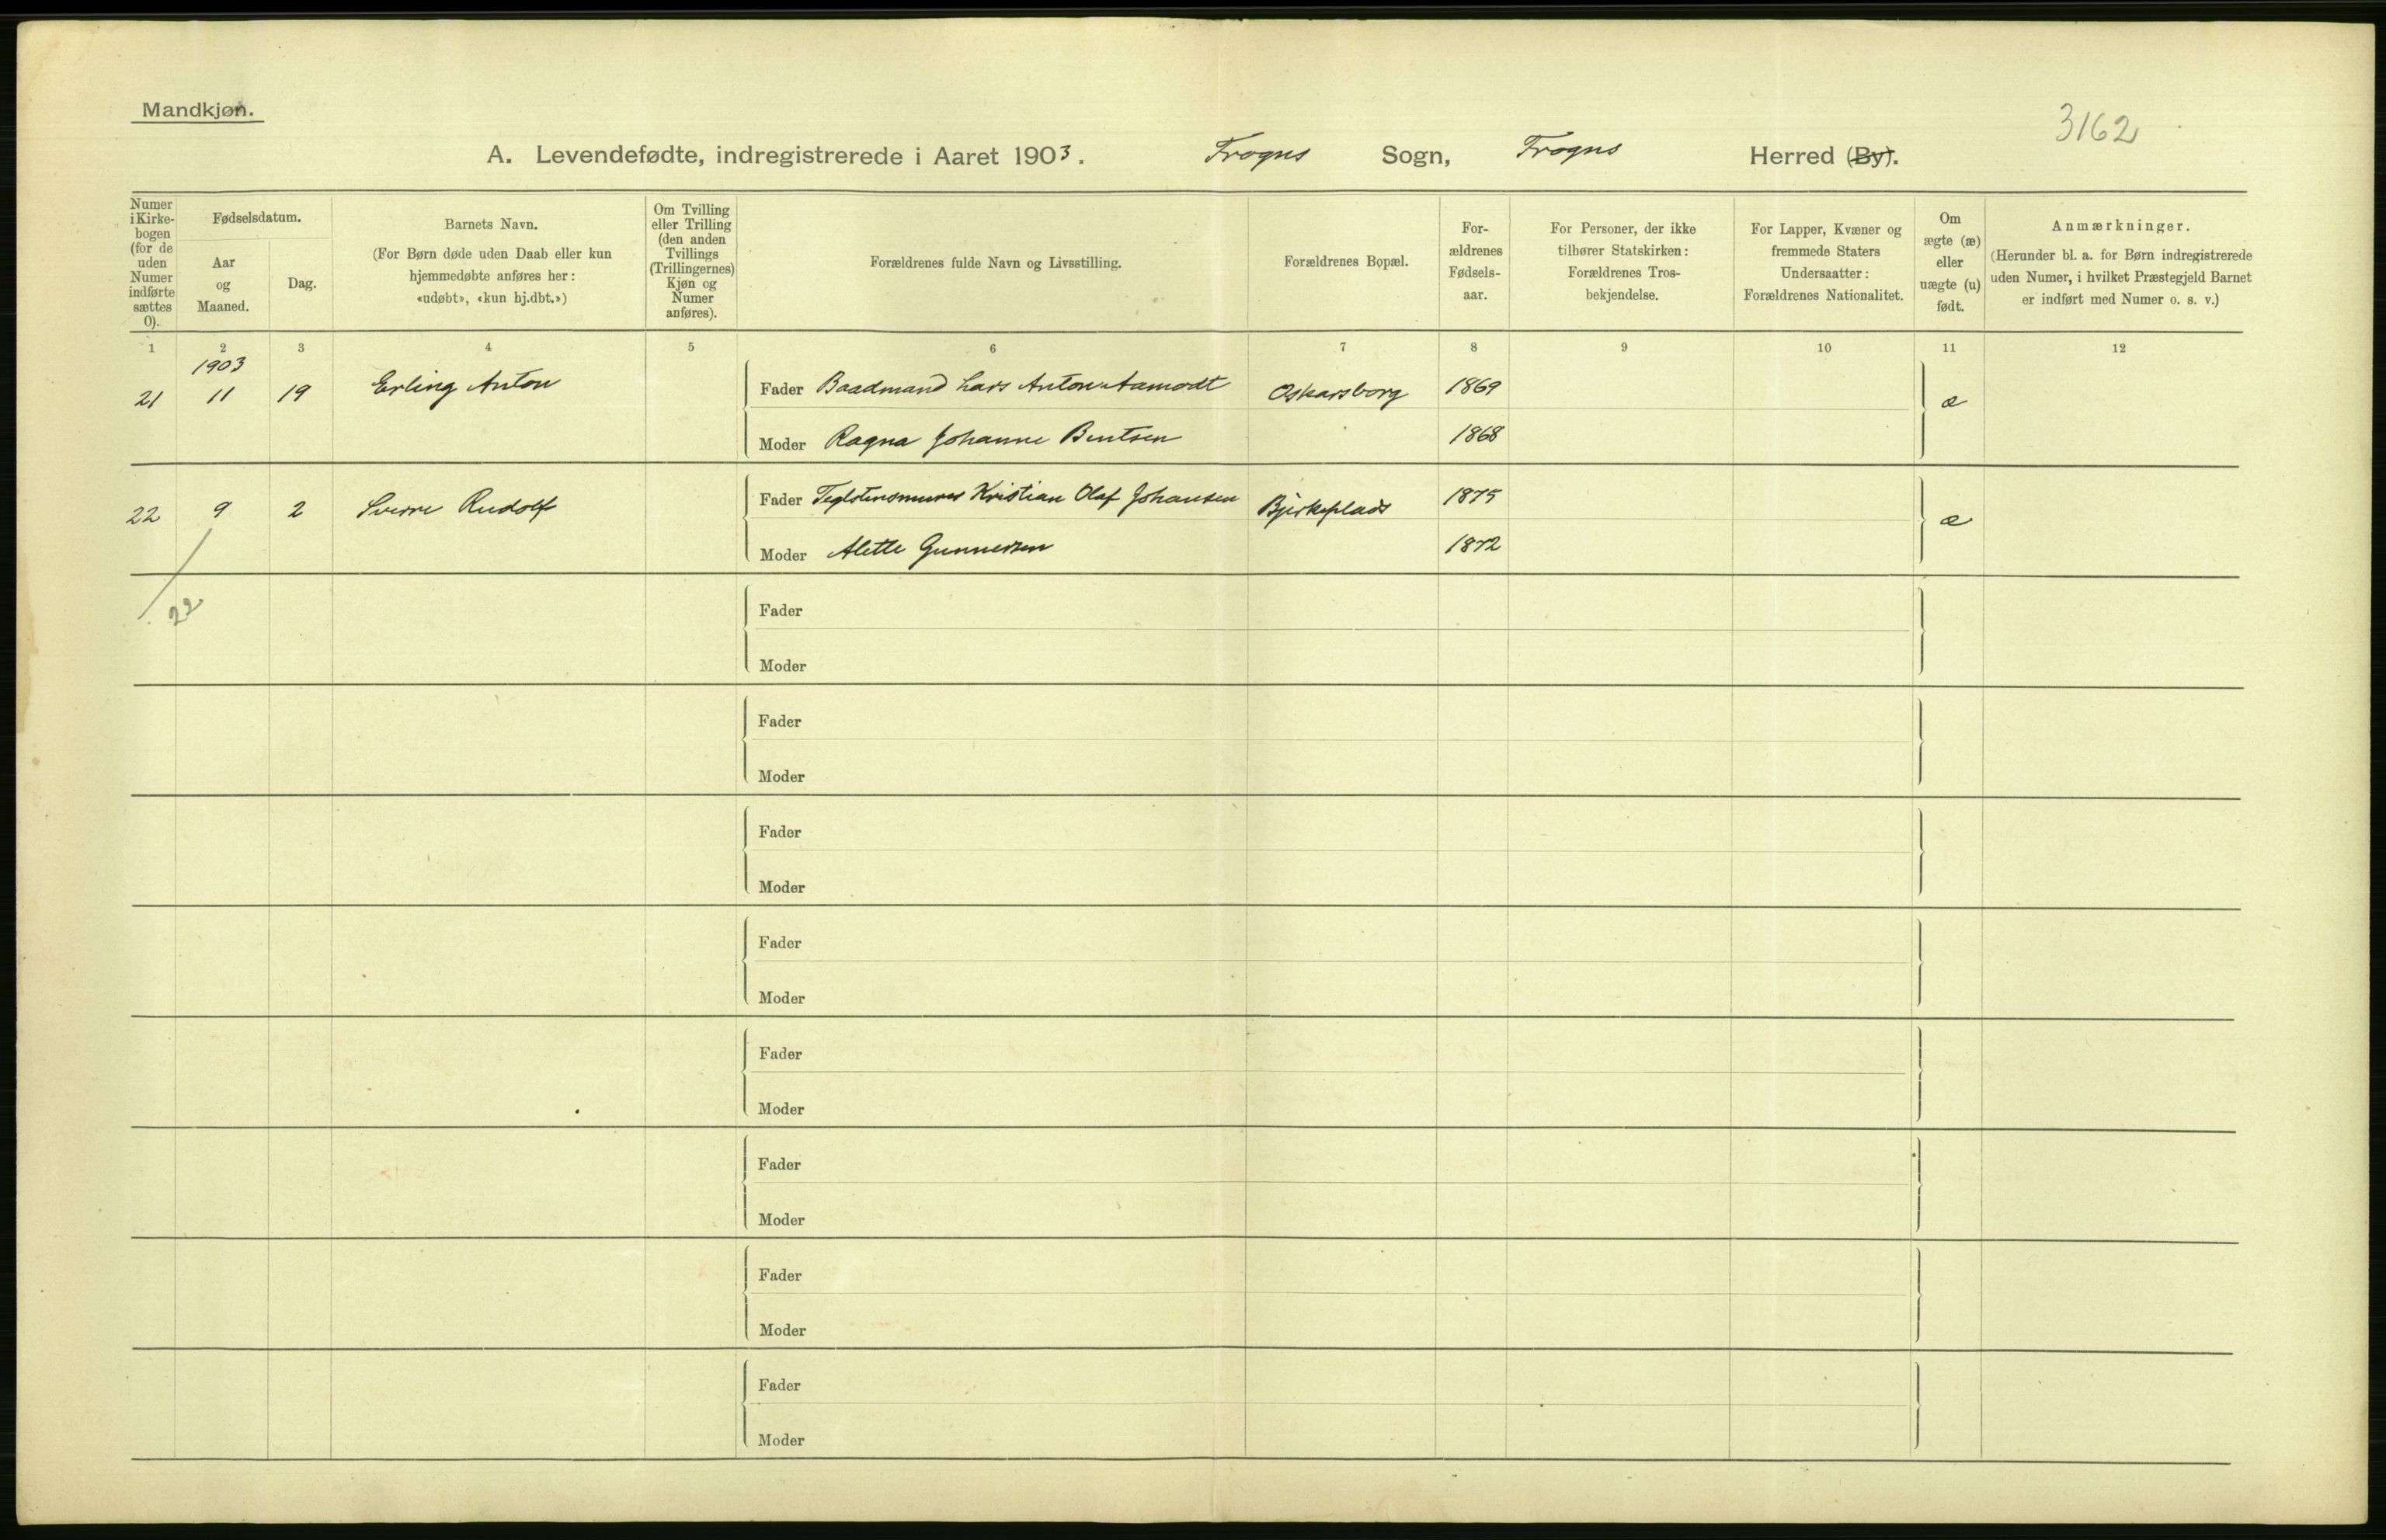 Mandkjøn.
3162
A. Levendefødte, indregistrerede i Aaret 1903. Frogns Sogn, Frogns Herred (By).
Numer i Kirke-bogen (for de uden Numer indførte sættes 0).
Fødselsdatum.
Aar og Maaned.
Dag.
Barnets Navn.
(For Børn døde uden Daab eller kun
hjemmedøbte anføres her:
«udøbt», «kun hj.dbt.»)
Om Tvilling
eller Trilling
(den anden
Tvillings
(Trillingernes)
Kjøn og
Numer
anføres).
Forældrenes fulde Navn og Livsstilling.
Forældrenes Bopæl.
For-
ældrenes
Fødsels-
aar.
For Personer, der ikke
tilhører Statskirken:
Forældrenes Tros-
bekjendelse.
For Lapper, Kvæner og
fremmede Staters
Undersaatter:
Forældrenes Nationalitet.
Om
ægte (æ)
eller
uægte (u)
født.
Anmærkninger.
(Herunder bl. a. for Børn indregistrerede
uden Numer, i hvilket Præstegjeld Barnet
er indført med Numer o. s. v.)
1 2 3 4 5 6 7 8 9 10 11 12
1903
21 11 19 Erling Anton Fader Baadmand Lars Anton Aamodt Oskarsborg 1869 æ
Moder Ragna Johanne Bentsen 1868
22 9 2 Sverre Rudolf Fader Teglstensmurer Kristian Olaf Johansen Bjerkeplads 1875 æ
Moder Alette Gunnersen 1872
22
Fader
Moder
Fader
Moder
Fader
Moder
Fader
Moder
Fader
Moder
Fader
Moder
Fader
Moder
Fader
Moder